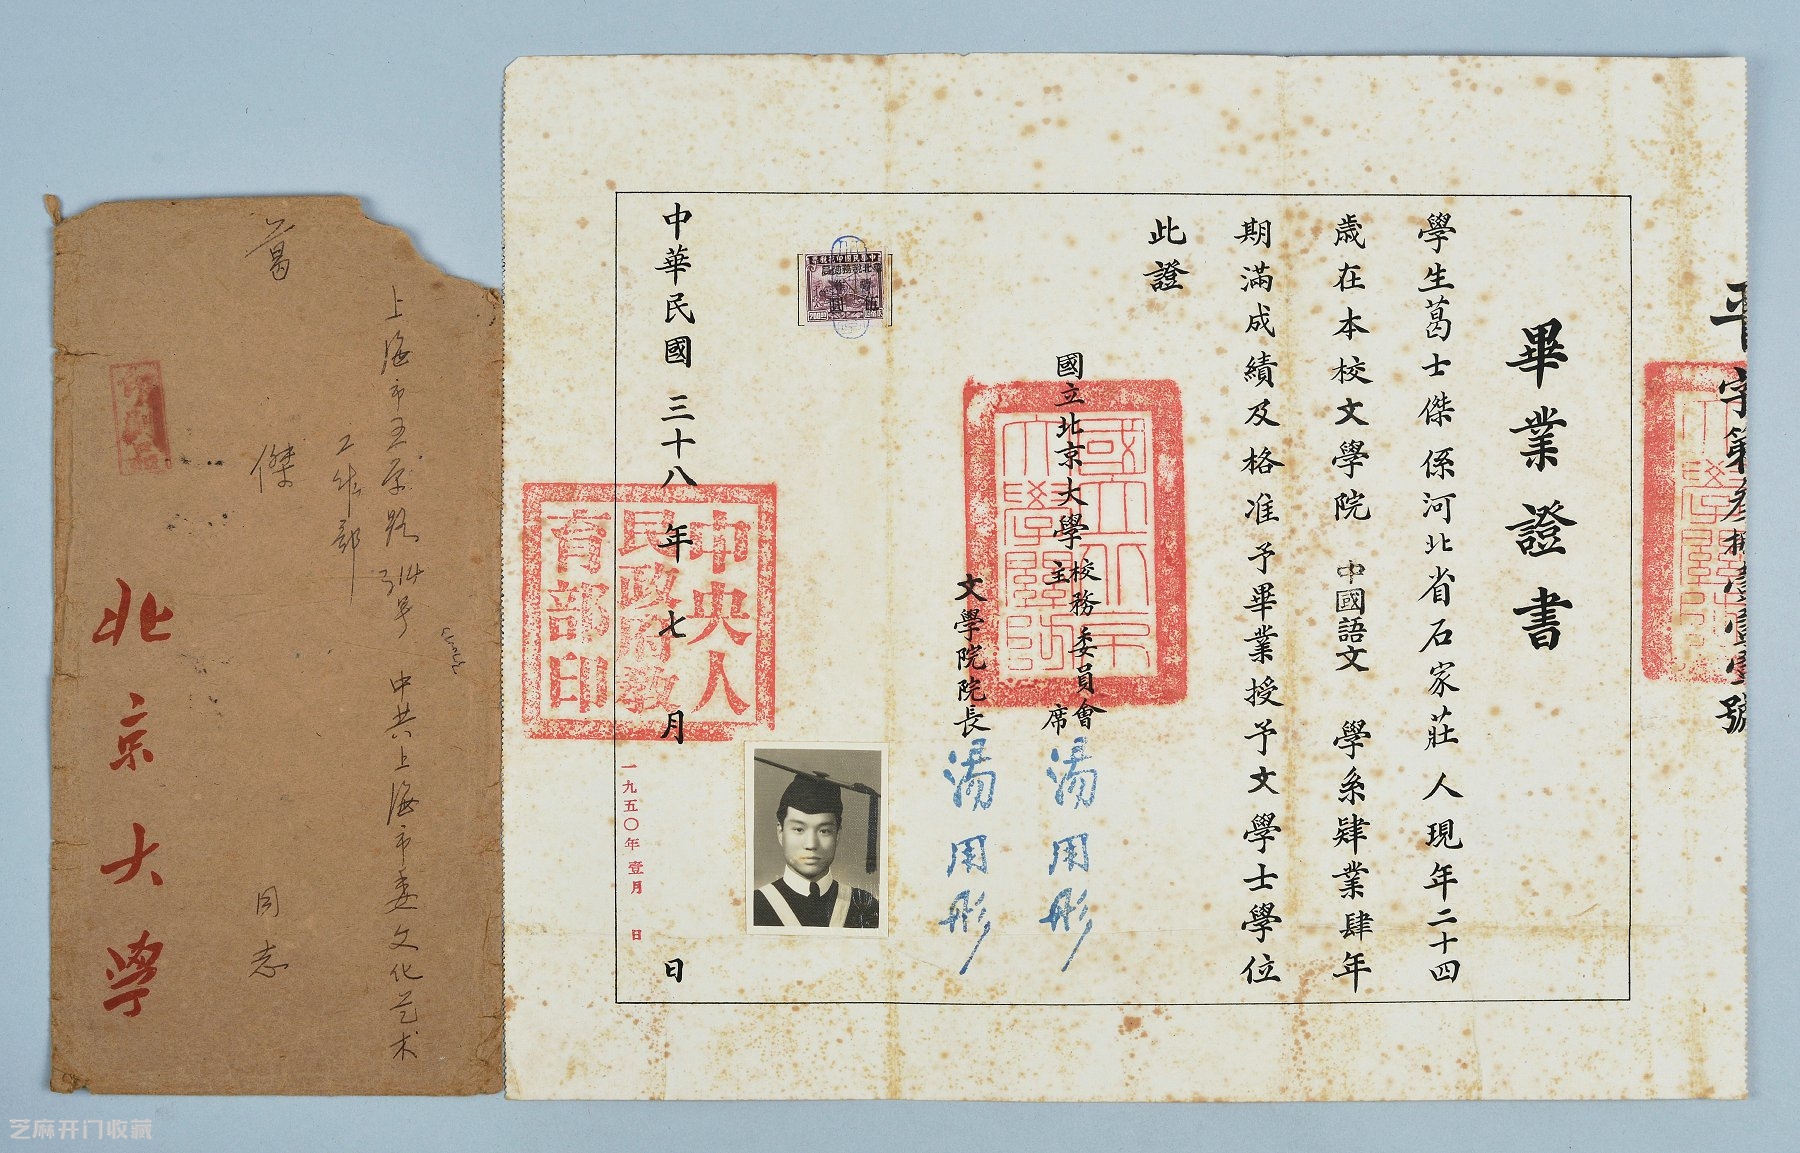 畢業證書
學生葛士傑係河北省石家莊人現年二十四
歲在本校文學院中國語文學系肄業肆年
期滿成績及格准予畢業授予文學士學位
此證
國立北京大學校務委員會主席湯用彤
文學院院長湯用彤
中華民國三十八年七月日
中央人民政府教育部印
一九五〇年壹月日
字第
號
上海市五原路314号中共上海市委文化艺术
工作部
葛傑同志
北京大學
芝麻开门收藏